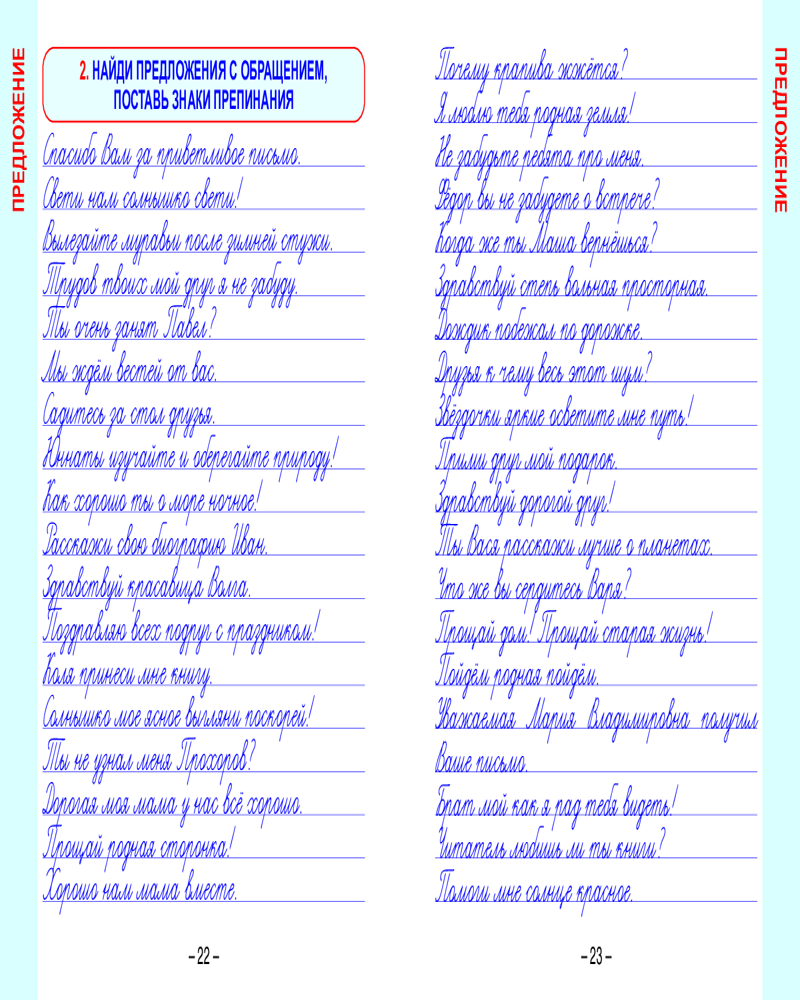 ПРЕДЛОЖЕНИЕ
2. НАЙДИ ПРЕДЛОЖЕНИЯ С ОБРАЩЕНИЕМ,
ПОСТАВЬ ЗНАКИ ПРЕПИНАНИЯ
Спасибо Вам за приветливое письмо.
Свети нам солнышко свети!
Вылезайте муравьи после зимней стужи.
Трудов твоих мой друг я не забуду.
Ты очень занят Павел?
Мы ждём вестей от вас.
Садитесь за стол друзья.
Юннаты изучайте и оберегайте природу!
Как хорошо ты о море ночное!
Расскажи свою биографию Иван.
Здравствуй красавица Волга.
Поздравляю всех подруг с праздником!
Коля принеси мне книгу.
Солнышко мое ясное выгляни поскорей!
Ты не узнал меня Прохоров?
Дорогая моя мама у нас всё хорошо.
Прощай родная сторонка!
Хорошо нам мама вместе.
– 22 –
Почему крапива жжётся?
Я люблю тебя родная земля!
Не забудьте ребята про меня.
Фёдор вы не забудете о встрече?
Когда же ты Маша вернёшься?
Здравствуй степь вольная просторная.
Дождик побежал по дорожке.
Друзья к чему весь этот шум?
Звёздочки яркие осветите мне путь!
Прими друг мой подарок.
Здравствуй дорогой друг!
Ты Вася расскажи лучше о планетах.
Что же вы сердитесь Варя?
Прощай дом! Прощай старая жизнь!
Пойдём родная пойдём.
Уважаемая Мария Владимировна получил
Ваше письмо.
Брат мой как я рад тебя видеть!
Читатель любишь ли ты книги?
Помоги мне солнце красное.
– 23 –
ПРЕДЛОЖЕНИЕ